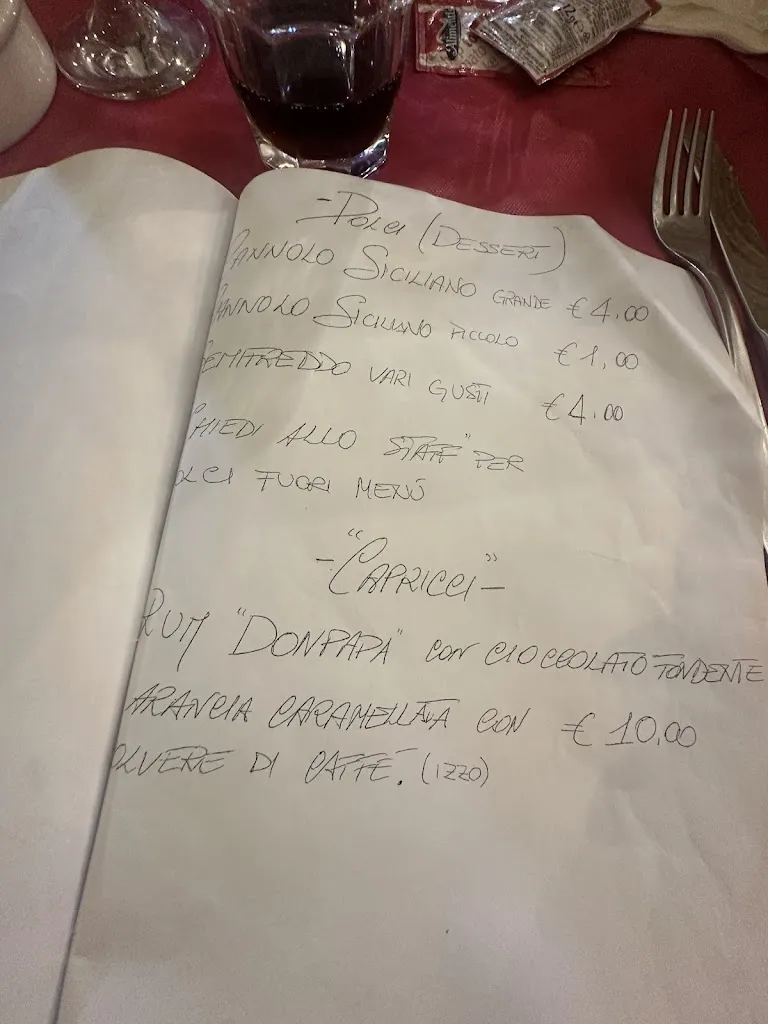 - Dolci (DESSERT)
CANNOLO SICILIANO GRANDE € 4.00
CANNOLO SICILIANO PICCOLO € 1,00
SEMIFREDDO VARI GUSTI € 4.00
CHIEDI ALLO STAFF" PER
OLCI FUORI MENÚ
- "CAPRICCI" -
RUM "DONPAPA" CON CIOCCOLATO FONDENTE
ARANCIA CARAMELLATA CON € 10,00
OLVERE DI CAFFÉ. (IZZO)